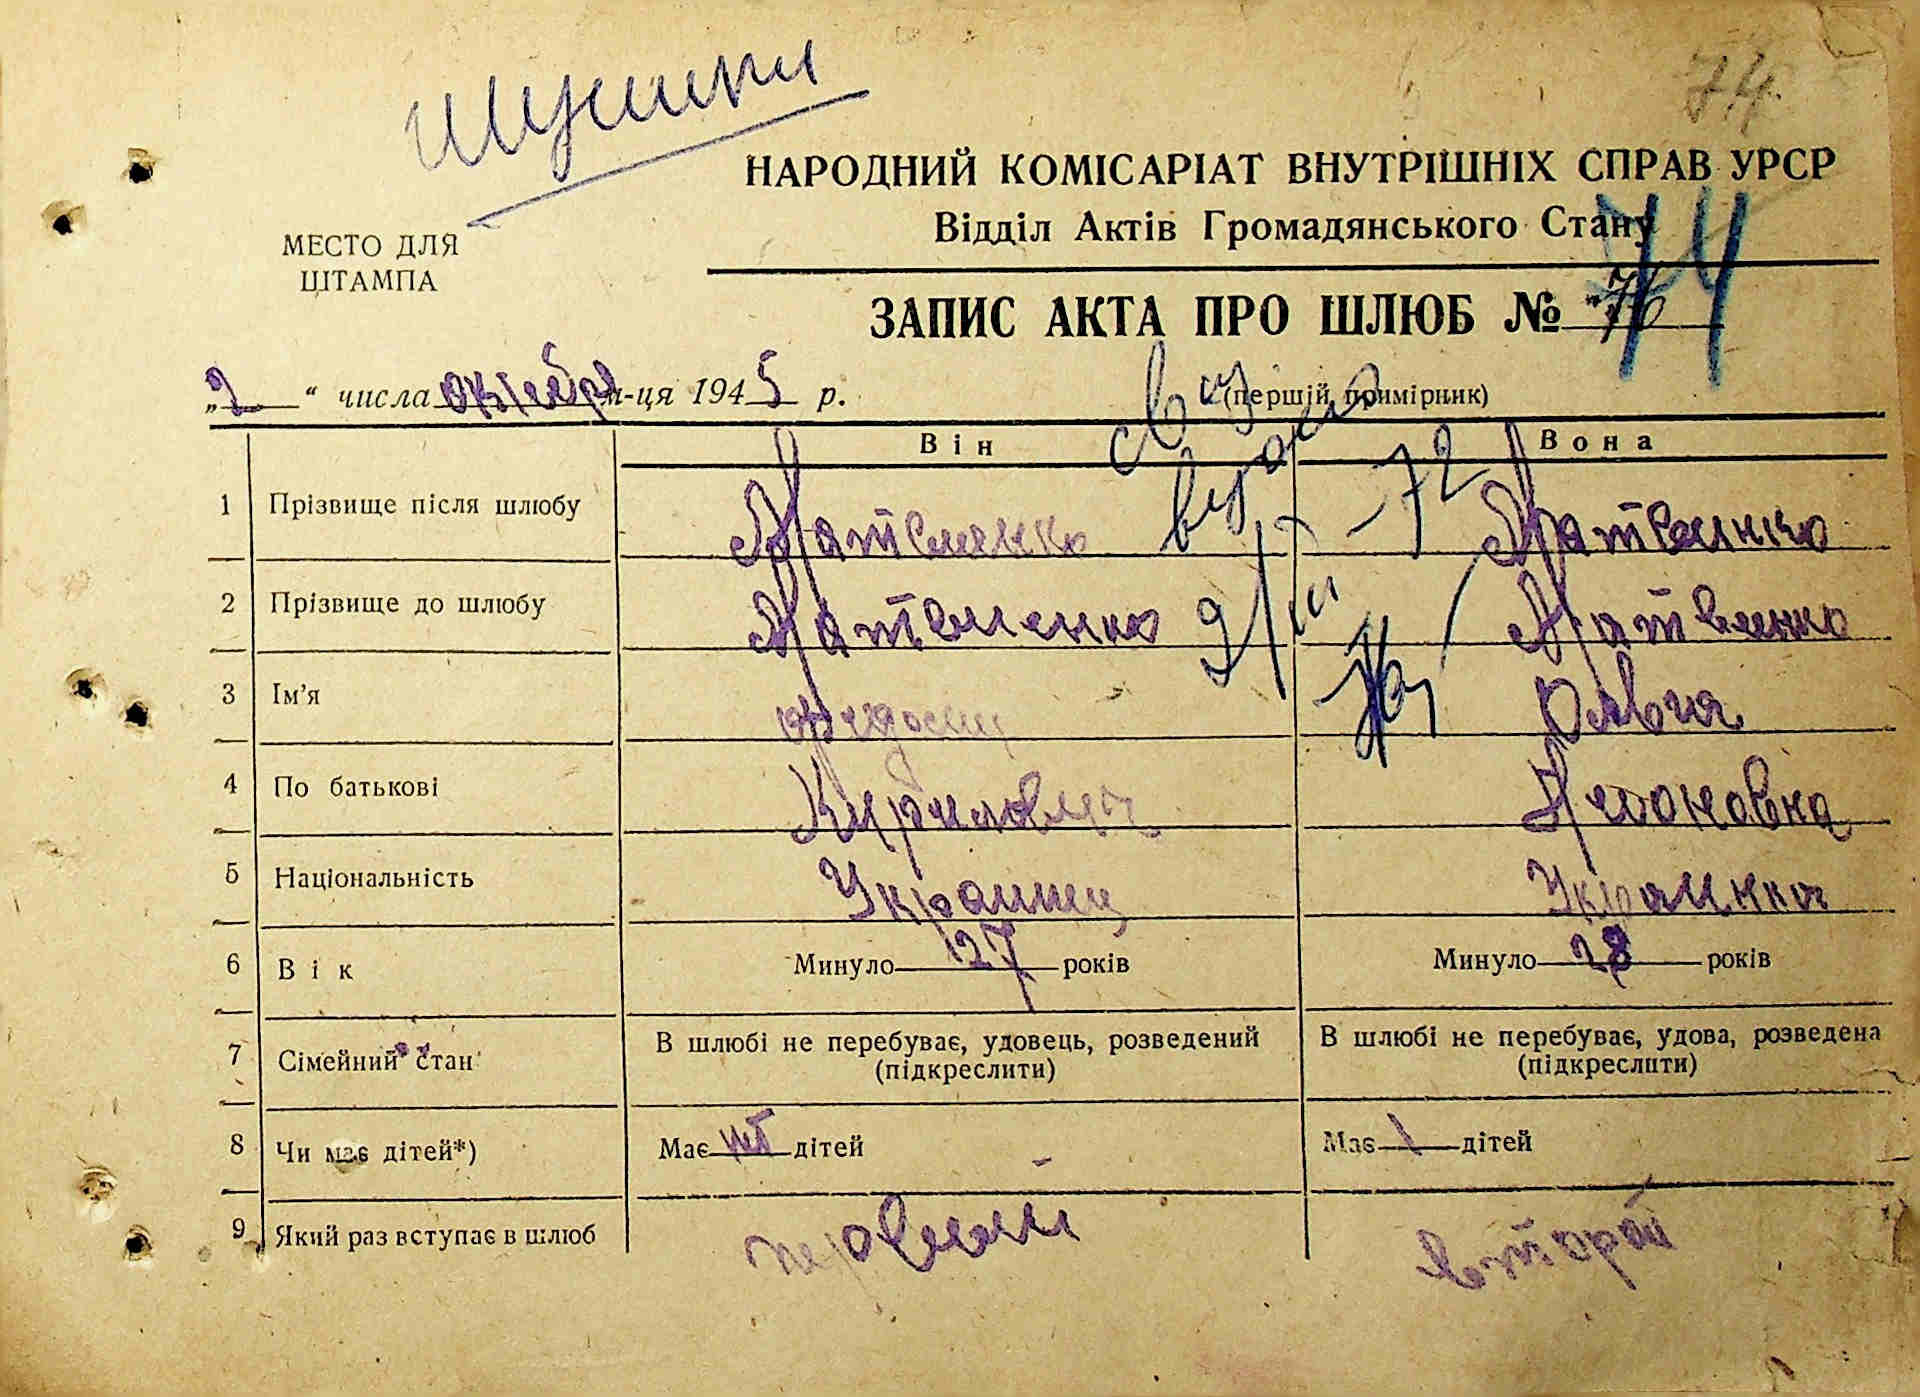 74
НАРОДНИЙ КОМІСАРІАТ ВНУТРІШНІХ СПРАВ УРСР
Відділ Актів Громадянського Стану
74
МЕСТО ДЛЯ
ШТАМПА
ЗАПИС АКТА ПРО ШЛЮБ № 76
„2 “ числа октября м-ця 1945 р.
(перший примірник)
Він Вона
1 Прізвище після шлюбу Матвиенко Матвиенко
2 Прізвище до шлюбу Матвиенко Матвиенко
9/III - 72
3 Ім'я Федосий
4 По батькові Кирилович
5 Національність Украинец Украинка
6 Вік Минуло 27 років Минуло 28 років
7 Сімейний стан В шлюбі не перебуває, удовець, розведений В шлюбі не перебуває, удова, розведена
(підкреслити) (підкреслити)
8 Чи має дітей*) Має нет дітей Має 1 дітей
9 Який раз вступає в шлюб первый второй